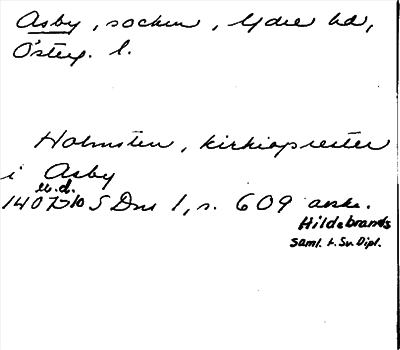 Asby, socken, Ydre hd,
Österg. l.
Holmsten, kirkioprester
i Asby
u.d.
1407 5/10 S Dns 1, s. 609 avskr.
Hildebrands
saml. t. Sv. Dipl.